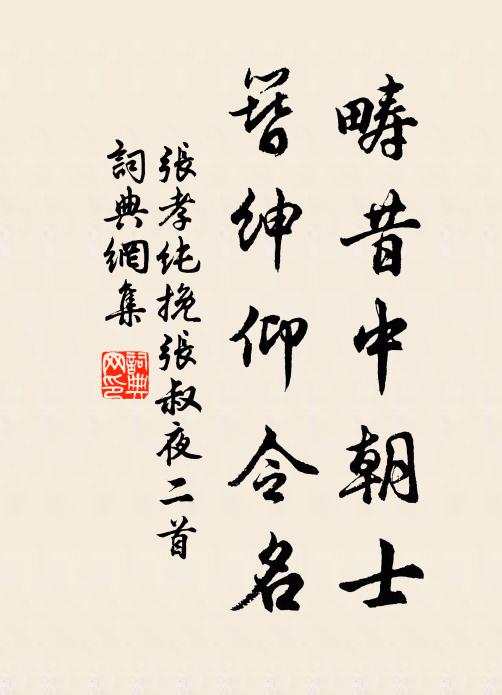 疇昔中朝士
簪紳仰令名
張孝純挽張叔夜二首
詞典網集
詞典网印